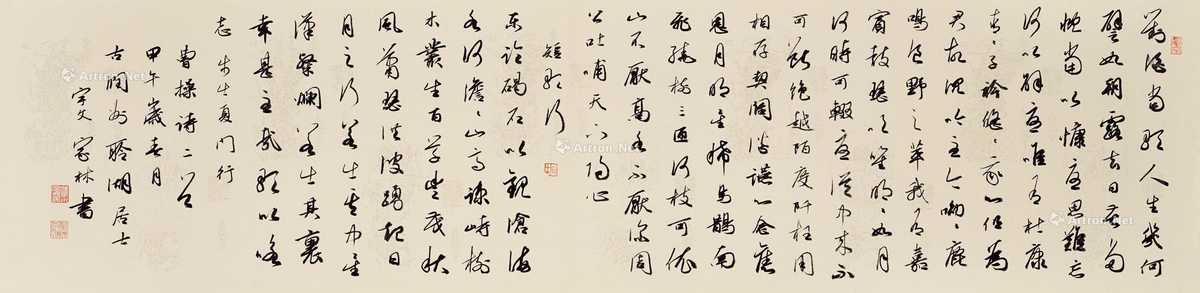 對酒當歌人生幾何
譬如朝露去日苦多
慨當以慷憂思難忘
何以解憂唯有杜康
青々子衿悠々我心但為
君故沉吟至今呦々鹿
鳴食野之苹我有嘉
賓鼓瑟吹笙明々如月
何時可輟憂從中來不
可斷絕越陌度阡枉用
相存契闊談讌心念舊
恩月明星稀烏鵲南
飛繞樹三匝何枝可依
山不厭高水不厭深周
公吐哺天下歸心
短歌行
東臨碣石以觀滄海
水何澹々山島竦峙樹
木叢生百草豐茂秋
風蕭瑟洪波踴起日
月之行若出其中星
漢燦爛若出其裏
幸甚至哉歌以詠
志 步出夏門行
曹操詩二首
甲午歲春月
古潤州聆湖居士
宇文家林書
Artron.Net
Artron.Net
Artron.Net